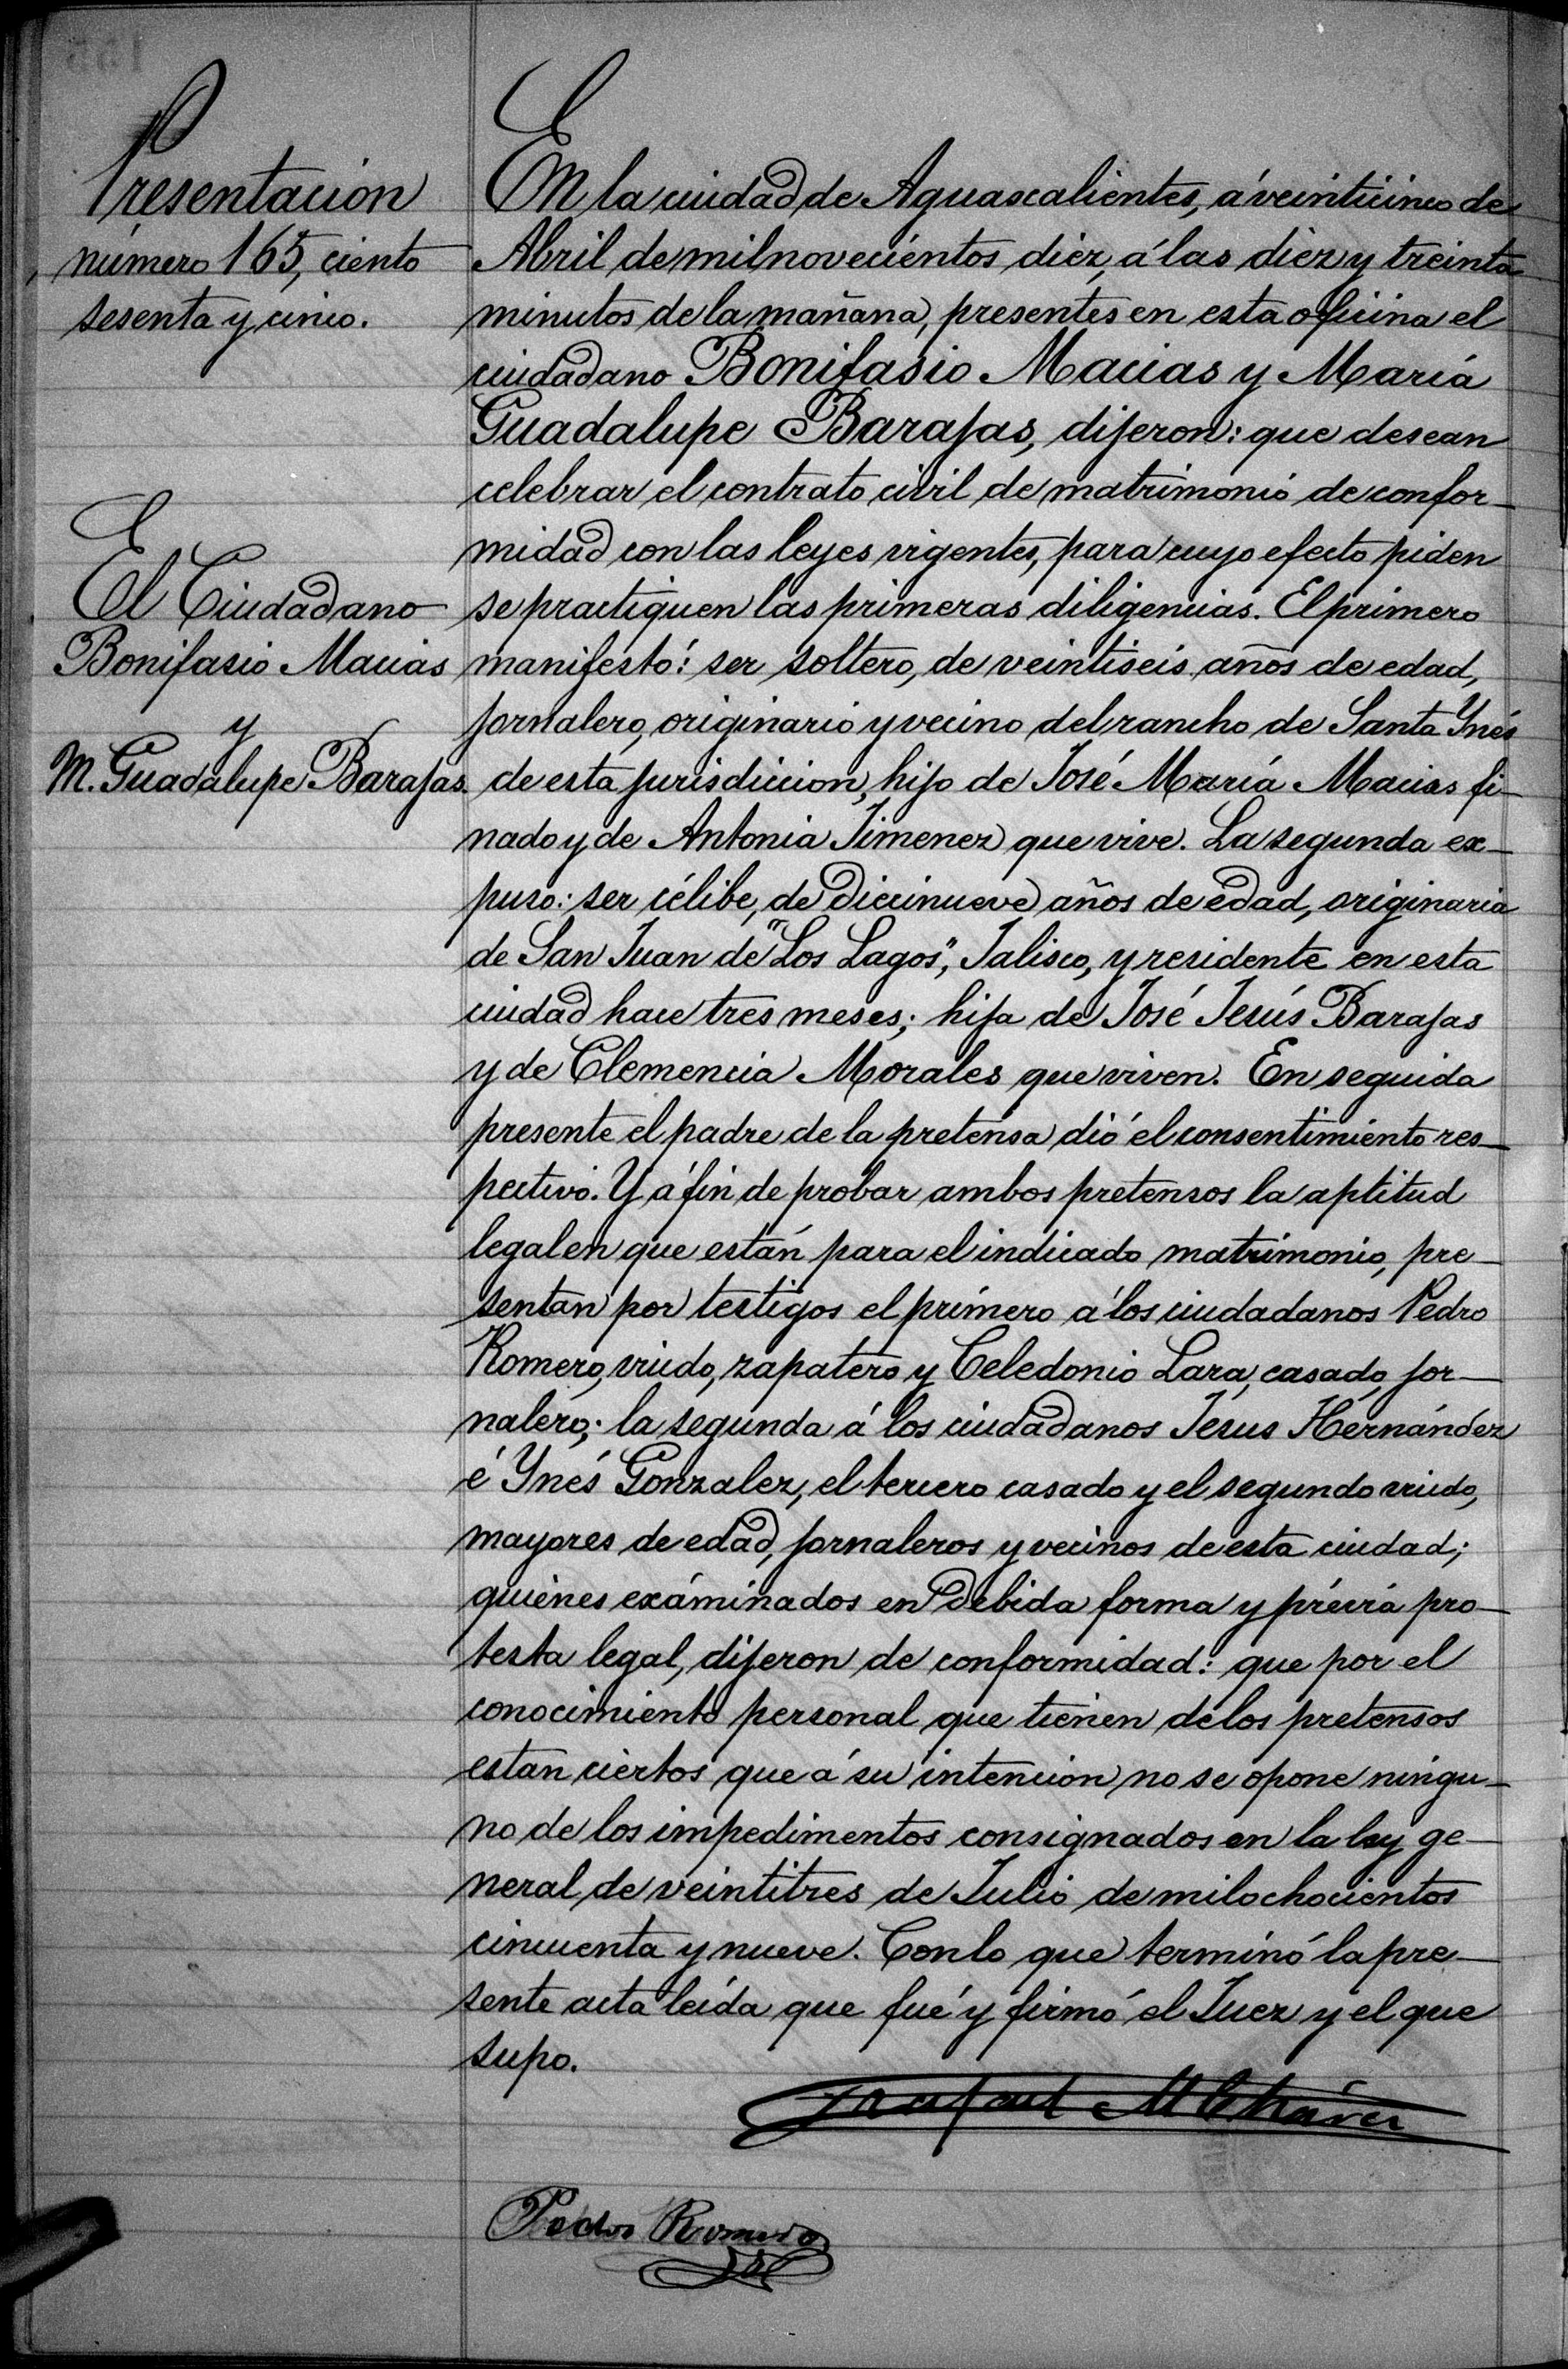 Presentación
número 165, ciento
sesenta y cinco.
El Ciudadano
Bonifasio Macias
y
M. Guadalupe Barajas.
En la ciudad de Aguascalientes, á veinticinco de
Abril de mil novecientos diez, á las diez y treinta
minutos de la mañana, presentes en esta oficina el
ciudadano Bonifasio Macias y María
Guadalupe Barajas, dijeron: que desean
celebrar el contrato civil de matrimonio de confor-
midad con las leyes vigentes, para cuyo efecto piden
se practiquen las primeras diligencias. El primero
manifestó: ser soltero, de veintiseis años de edad,
jornalero, originario y vecino del rancho de Santa Ynés
de esta jurisdiccion, hijo de José María Macias fi-
nado y de Antonia Jimenez que vive. La segunda ex-
puso: ser célibe, de diecinueve años de edad, originaria
de San Juan de "Los Lagos", Jalisco, y residente en esta
ciudad hace tres meses; hija de José Jesús Barajas
y de Clemencia Morales que viven. En seguida
presente el padre de la pretensa dió el consentimiento res-
pectivo. Y á fin de probar ambos pretensos la aptitud
legal en que están para el indicado matrimonio, pre-
sentan por testigos el primero á los ciudadanos Pedro
Romero, viudo, zapatero y Celedonio Lara, casado, jor-
nalero; la segunda á los ciudadanos Jesus Hernández
é Ynés Gonzalez, el tercero casado y el segundo viudo,
mayores de edad, jornaleros y vecinos de esta ciudad;
quienes examinados en debida forma y prévia pro-
testa legal, dijeron de conformidad: que por el
conocimiento personal que tienen de los pretensos
estan ciertos que á su intencion no se opone ningu-
no de los impedimentos consignados en la ley ge-
neral de veintitres de Julio de mil ochocientos
cincuenta y nueve. Con lo que terminó la pre-
sente acta leída que fué y firmó el Juez y el que
supo.
Rafael M Chávez
Pedro Romero